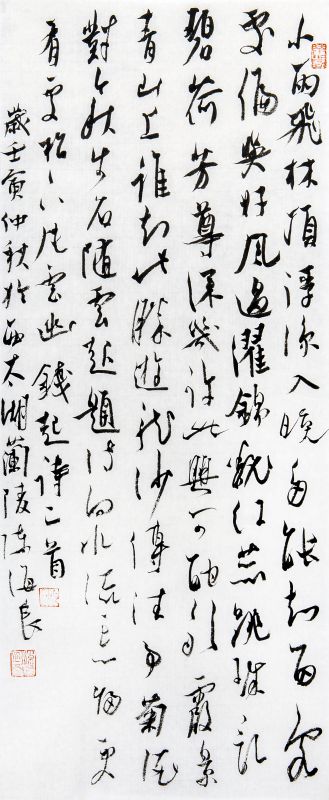 小雨飛林頂浮涼入晚多能知留客
處偏與好風過濯錦翻紅蕊跳珠亂
碧荷芳尊深幾許此興可酣歌霞景
青山上誰知此勝遊龍沙傳往事菊酒
對今秋步石隨雲起題詩向水流忘歸更
有處松下片雲幽錢起詩二首
歲壬寅仲秋於西太湖蘭陵陳海良